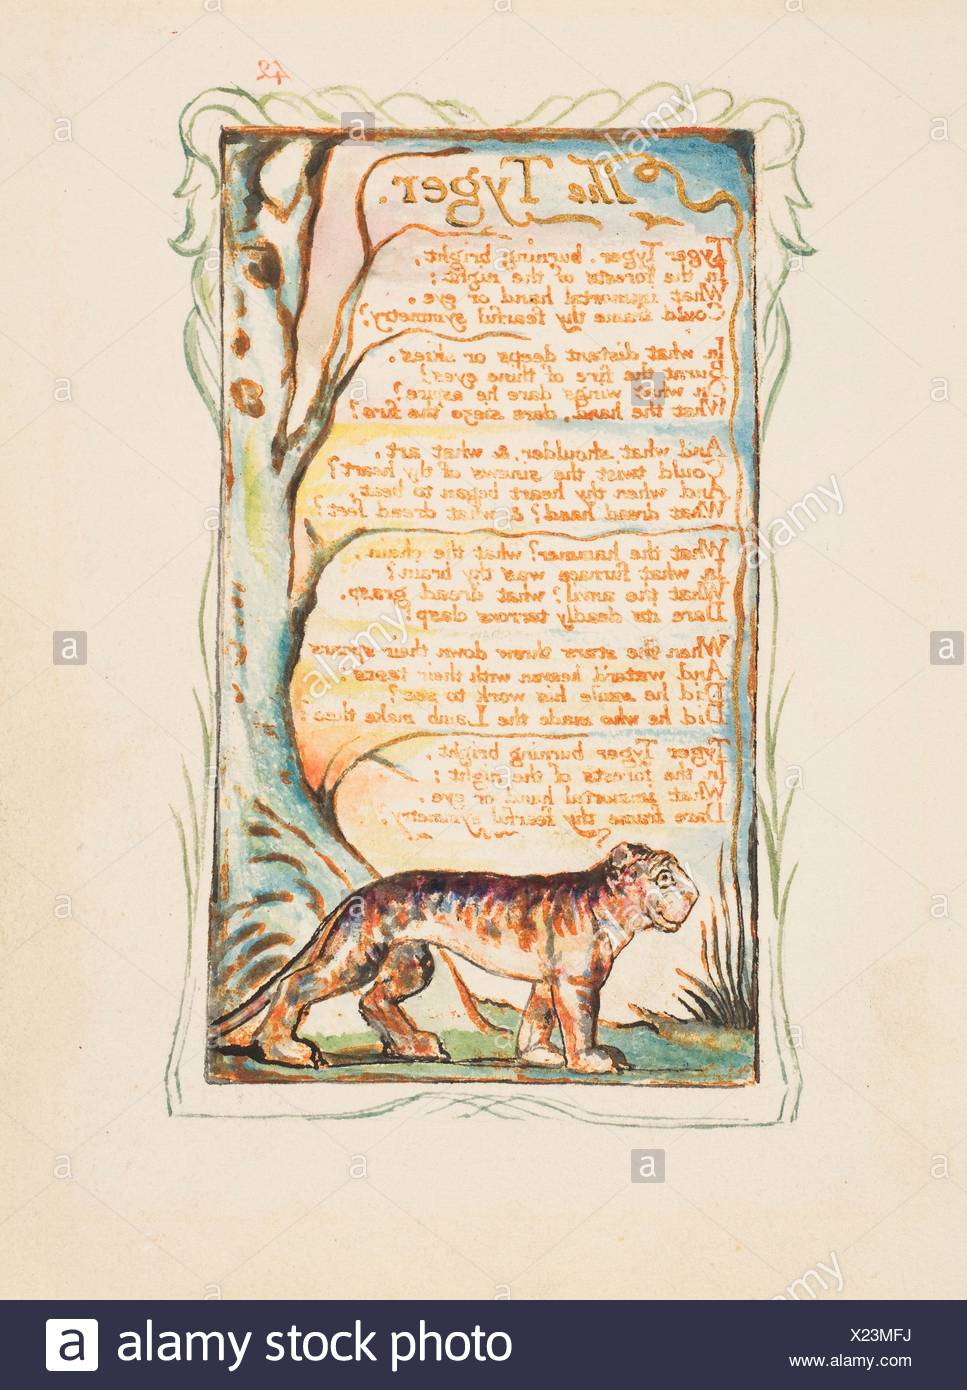 42
The Tyger.
Tyger Tyger. burning bright,
In the forests of the night;
What immortal hand or eye.
Could frame thy fearful symmetry?
In what distant deeps or skies.
Burnt the fire of thine eyes?
On what wings dare he aspire?
What the hand, dare sieze the fire?
And what shoulder, & what art,
Could twist the sinews of thy heart?
And when thy heart began to beat,
What dread hand? & what dread feet?
What the hammer? what the chain,
In what furnace was thy brain?
What the anvil? what dread grasp,
Dare its deadly terrors clasp!
When the stars threw down their spears
And water'd heaven with their tears:
Did he smile his work to see?
Did he who made the Lamb make thee?
Tyger Tyger burning bright,
In the forests of the night:
What immortal hand or eye,
Dare frame thy fearful symmetry?
alamy
alamy
alamy
alamy
a alamy stock photo
X23MFJ
www.alamy.com